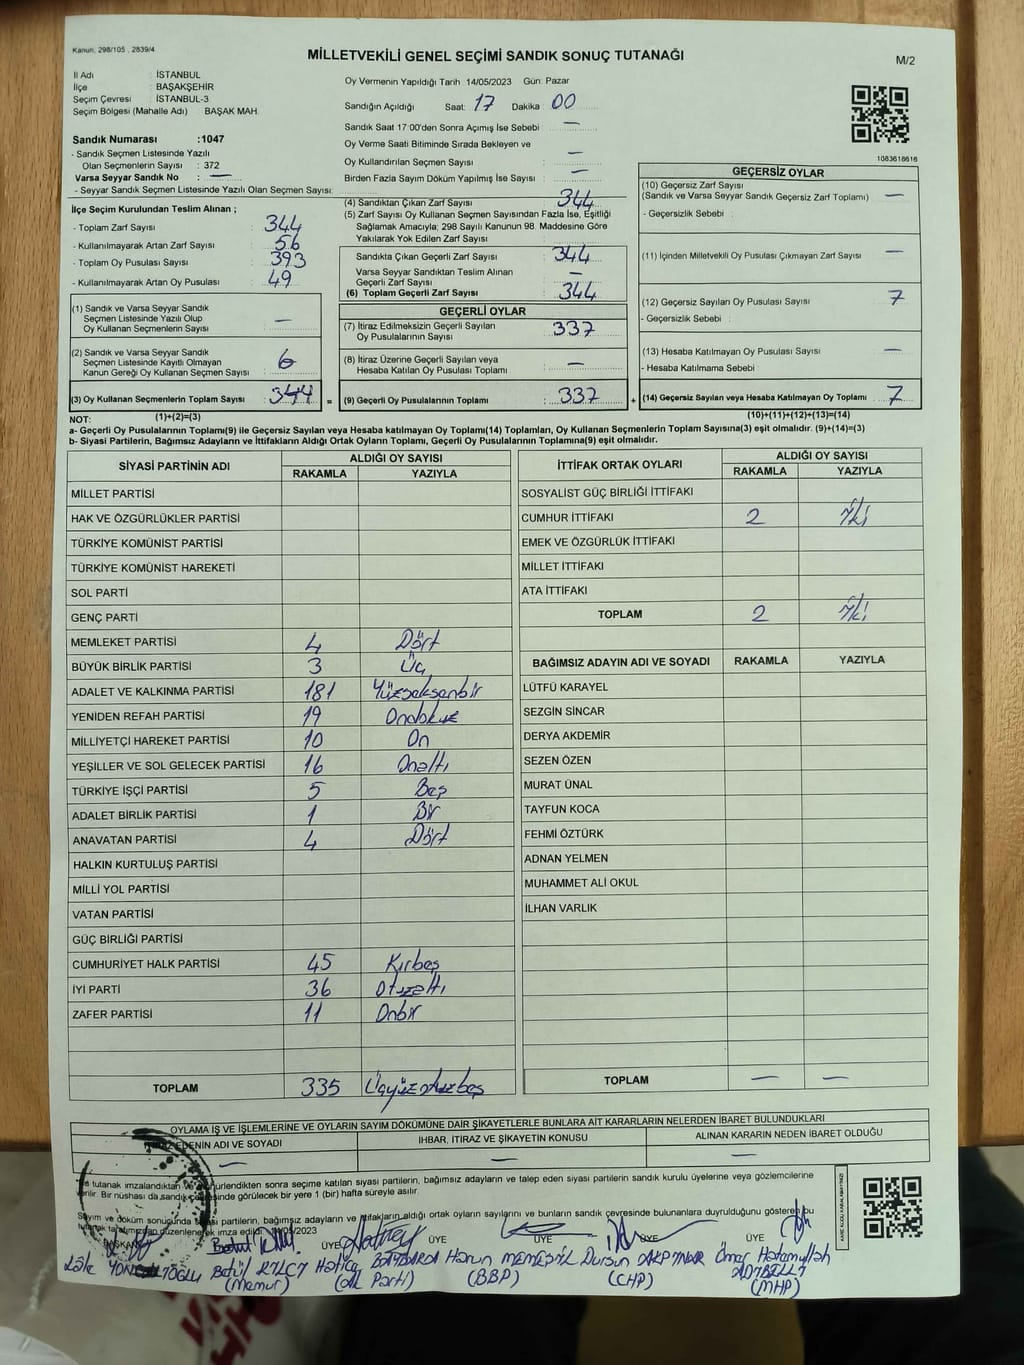 Kanun, 298/105 , 2839/4
MİLLETVEKİLİ GENEL SEÇİMİ SANDIK SONUÇ TUTANAĞI
M/2
İl Adı : İSTANBUL
İlçe : BAŞAKŞEHİR
Seçim Çevresi : İSTANBUL-3
Seçim Bölgesi (Mahalle Adı) : BAŞAK MAH.
Sandık Numarası :1047
- Sandık Seçmen Listesinde Yazılı
Olan Seçmenlerin Sayısı : 372
Varsa Seyyar Sandık No : —
- Seyyar Sandık Seçmen Listesinde Yazılı Olan Seçmen Sayısı:
Oy Vermenin Yapıldığı Tarih :14/05/2023 Gün: Pazar
Sandığın Açıldığı Saat: 17 Dakika 00
Sandık Saat 17:00'den Sonra Açımış İse Sebebi : —
Oy Verme Saati Bitiminde Sırada Bekleyen ve
Oy Kullandırılan Seçmen Sayısı : —
Birden Fazla Sayım Döküm Yapılmış İse Sayısı : —
1083616616
İlçe Seçim Kurulundan Teslim Alınan ;
- Toplam Zarf Sayısı : 344
- Kullanılmayarak Artan Zarf Sayısı : 56
- Toplam Oy Pusulası Sayısı : 393
- Kullanılmayarak Artan Oy Pusulası : 49
(1) Sandık ve Varsa Seyyar Sandık
Seçmen Listesinde Yazılı Olup
Oy Kullanan Seçmenlerin Sayısı : —
(2) Sandık ve Varsa Seyyar Sandık
Seçmen Listesinde Kayıtlı Olmayan
Kanun Gereği Oy Kullanan Seçmen Sayısı : 6
(3) Oy Kullanan Seçmenlerin Toplam Sayısı : 344 =
(4) Sandıktan Çıkan Zarf Sayısı : 344
(5) Zarf Sayısı Oy Kullanan Seçmen Sayısından Fazla İse, Eşitliği
Sağlamak Amacıyla; 298 Sayılı Kanunun 98. Maddesine Göre
Yakılarak Yok Edilen Zarf Sayısı :
Sandıkta Çıkan Geçerli Zarf Sayısı : 344
Varsa Seyyar Sandıktan Teslim Alınan
Geçerli Zarf Sayısı : —
(6) Toplam Geçerli Zarf Sayısı : 344
GEÇERLİ OYLAR
(7) İtiraz Edilmeksizin Geçerli Sayılan
Oy Pusulalarının Sayısı : 337
(8) İtiraz Üzerine Geçerli Sayılan veya
Hesaba Katılan Oy Pusulası Toplamı : —
(9) Geçerli Oy Pusulalarının Toplamı : 337 +
GEÇERSİZ OYLAR
(10) Geçersiz Zarf Sayısı
(Sandık ve Varsa Seyyar Sandık Geçersiz Zarf Toplamı) : —
- Geçersizlik Sebebi :
(11) İçinden Milletvekili Oy Pusulası Çıkmayan Zarf Sayısı : —
(12) Geçersiz Sayılan Oy Pusulası Sayısı : 7
- Geçersizlik Sebebi :
(13) Hesaba Katılmayan Oy Pusulası Sayısı : —
- Hesaba Katılmama Sebebi :
(14) Geçersiz Sayılan veya Hesaba Katılmayan Oy Toplamı : 7
NOT: (1)+(2)=(3) (10)+(11)+(12)+(13)=(14)
a- Geçerli Oy Pusulalarının Toplamı(9) ile Geçersiz Sayılan veya Hesaba katılmayan Oy Toplamı(14) Toplamları, Oy Kullanan Seçmenlerin Toplam Sayısına(3) eşit olmalıdır. (9)+(14)=(3)
b- Siyasi Partilerin, Bağımsız Adayların ve İttifakların Aldığı Ortak Oyların Toplamı, Geçerli Oy Pusulalarının Toplamına(9) eşit olmalıdır.
SİYASİ PARTİNİN ADI ALDIĞI OY SAYISI
RAKAMLA YAZIYLA
MİLLET PARTİSİ
HAK VE ÖZGÜRLÜKLER PARTİSİ
TÜRKİYE KOMÜNİST PARTİSİ
TÜRKİYE KOMÜNİST HAREKETİ
SOL PARTİ
GENÇ PARTİ
MEMLEKET PARTİSİ 4 Dört
BÜYÜK BİRLİK PARTİSİ 3 Üç
ADALET VE KALKINMA PARTİSİ 181 Yüzseksenbir
YENİDEN REFAH PARTİSİ 19 Ondokuz
MİLLİYETÇİ HAREKET PARTİSİ 10 On
YEŞİLLER VE SOL GELECEK PARTİSİ 16 Onaltı
TÜRKİYE İŞÇİ PARTİSİ 5 Beş
ADALET BİRLİK PARTİSİ 1 Bir
ANAVATAN PARTİSİ 4 Dört
HALKIN KURTULUŞ PARTİSİ
MİLLİ YOL PARTİSİ
VATAN PARTİSİ
GÜÇ BİRLİĞİ PARTİSİ
CUMHURİYET HALK PARTİSİ 45 Kırbeş
İYİ PARTİ 36 Otuzaltı
ZAFER PARTİSİ 11 Onbir
TOPLAM 335 Üçyüzotuzbeş
İTTİFAK ORTAK OYLARI ALDIĞI OY SAYISI
RAKAMLA YAZIYLA
SOSYALİST GÜÇ BİRLİĞİ İTTİFAKI
CUMHUR İTTİFAKI 2 İki
EMEK VE ÖZGÜRLÜK İTTİFAKI
MİLLET İTTİFAKI
ATA İTTİFAKI
TOPLAM 2 İki
BAĞIMSIZ ADAYIN ADI VE SOYADI RAKAMLA YAZIYLA
LÜTFÜ KARAYEL
SEZGİN SİNCAR
DERYA AKDEMİR
SEZEN ÖZEN
MURAT ÜNAL
TAYFUN KOCA
FEHMİ ÖZTÜRK
ADNAN YELMEN
MUHAMMET ALİ OKUL
İLHAN VARLIK
TOPLAM — —
OYLAMA İŞ VE İŞLEMLERİNE VE OYLARIN SAYIM DÖKÜMÜNE DAİR ŞİKAYETLERLE BUNLARA AİT KARARLARIN NELERDEN İBARET BULUNDUKLARI
EDENİN ADI VE SOYADI İHBAR, İTİRAZ VE ŞİKAYETİN KONUSU ALINAN KARARIN NEDEN İBARET OLDUĞU
— — —
tutanak imzalandıktan sonra seçime katılan siyasi partilerin, bağımsız adayların ve talep eden siyasi partilerin sandık kurulu üyelerine veya gözlemcilerine
verilir. Bir nüshası da sandık çevresinde görülecek bir yere 1 (bir) hafta süreyle asılır.
Sayım ve döküm sonucunda siyasi partilerin, bağımsız adayların ve ittifakların aldığı ortak oyların sayılarını ve bunların sandık çevresinde bulunanlara duyrulduğunu gösteren bu
tutanak tarafımızdan düzenlenerek imza edildi. /05/2023
BAŞKAN ÜYE ÜYE ÜYE ÜYE
Batül KILÇI Hatice Harun Dursun AKPINAR Ömer
(Memur) (AK Parti) (BBP) (CHP) (MHP)